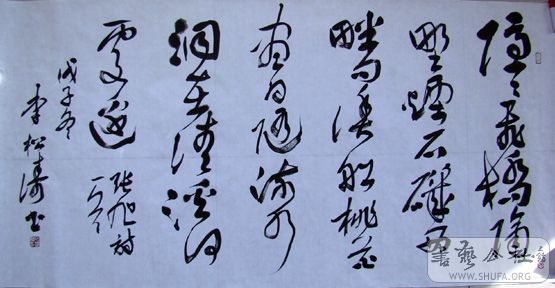 隱隱飛橋隔
野煙石磯西
畔問漁船桃花
盡日隨流水
洞在清溪何
處邊
張旭詩
一首
戊子年
李松濤書
書藝公社
WWW.SHUFA.ORG